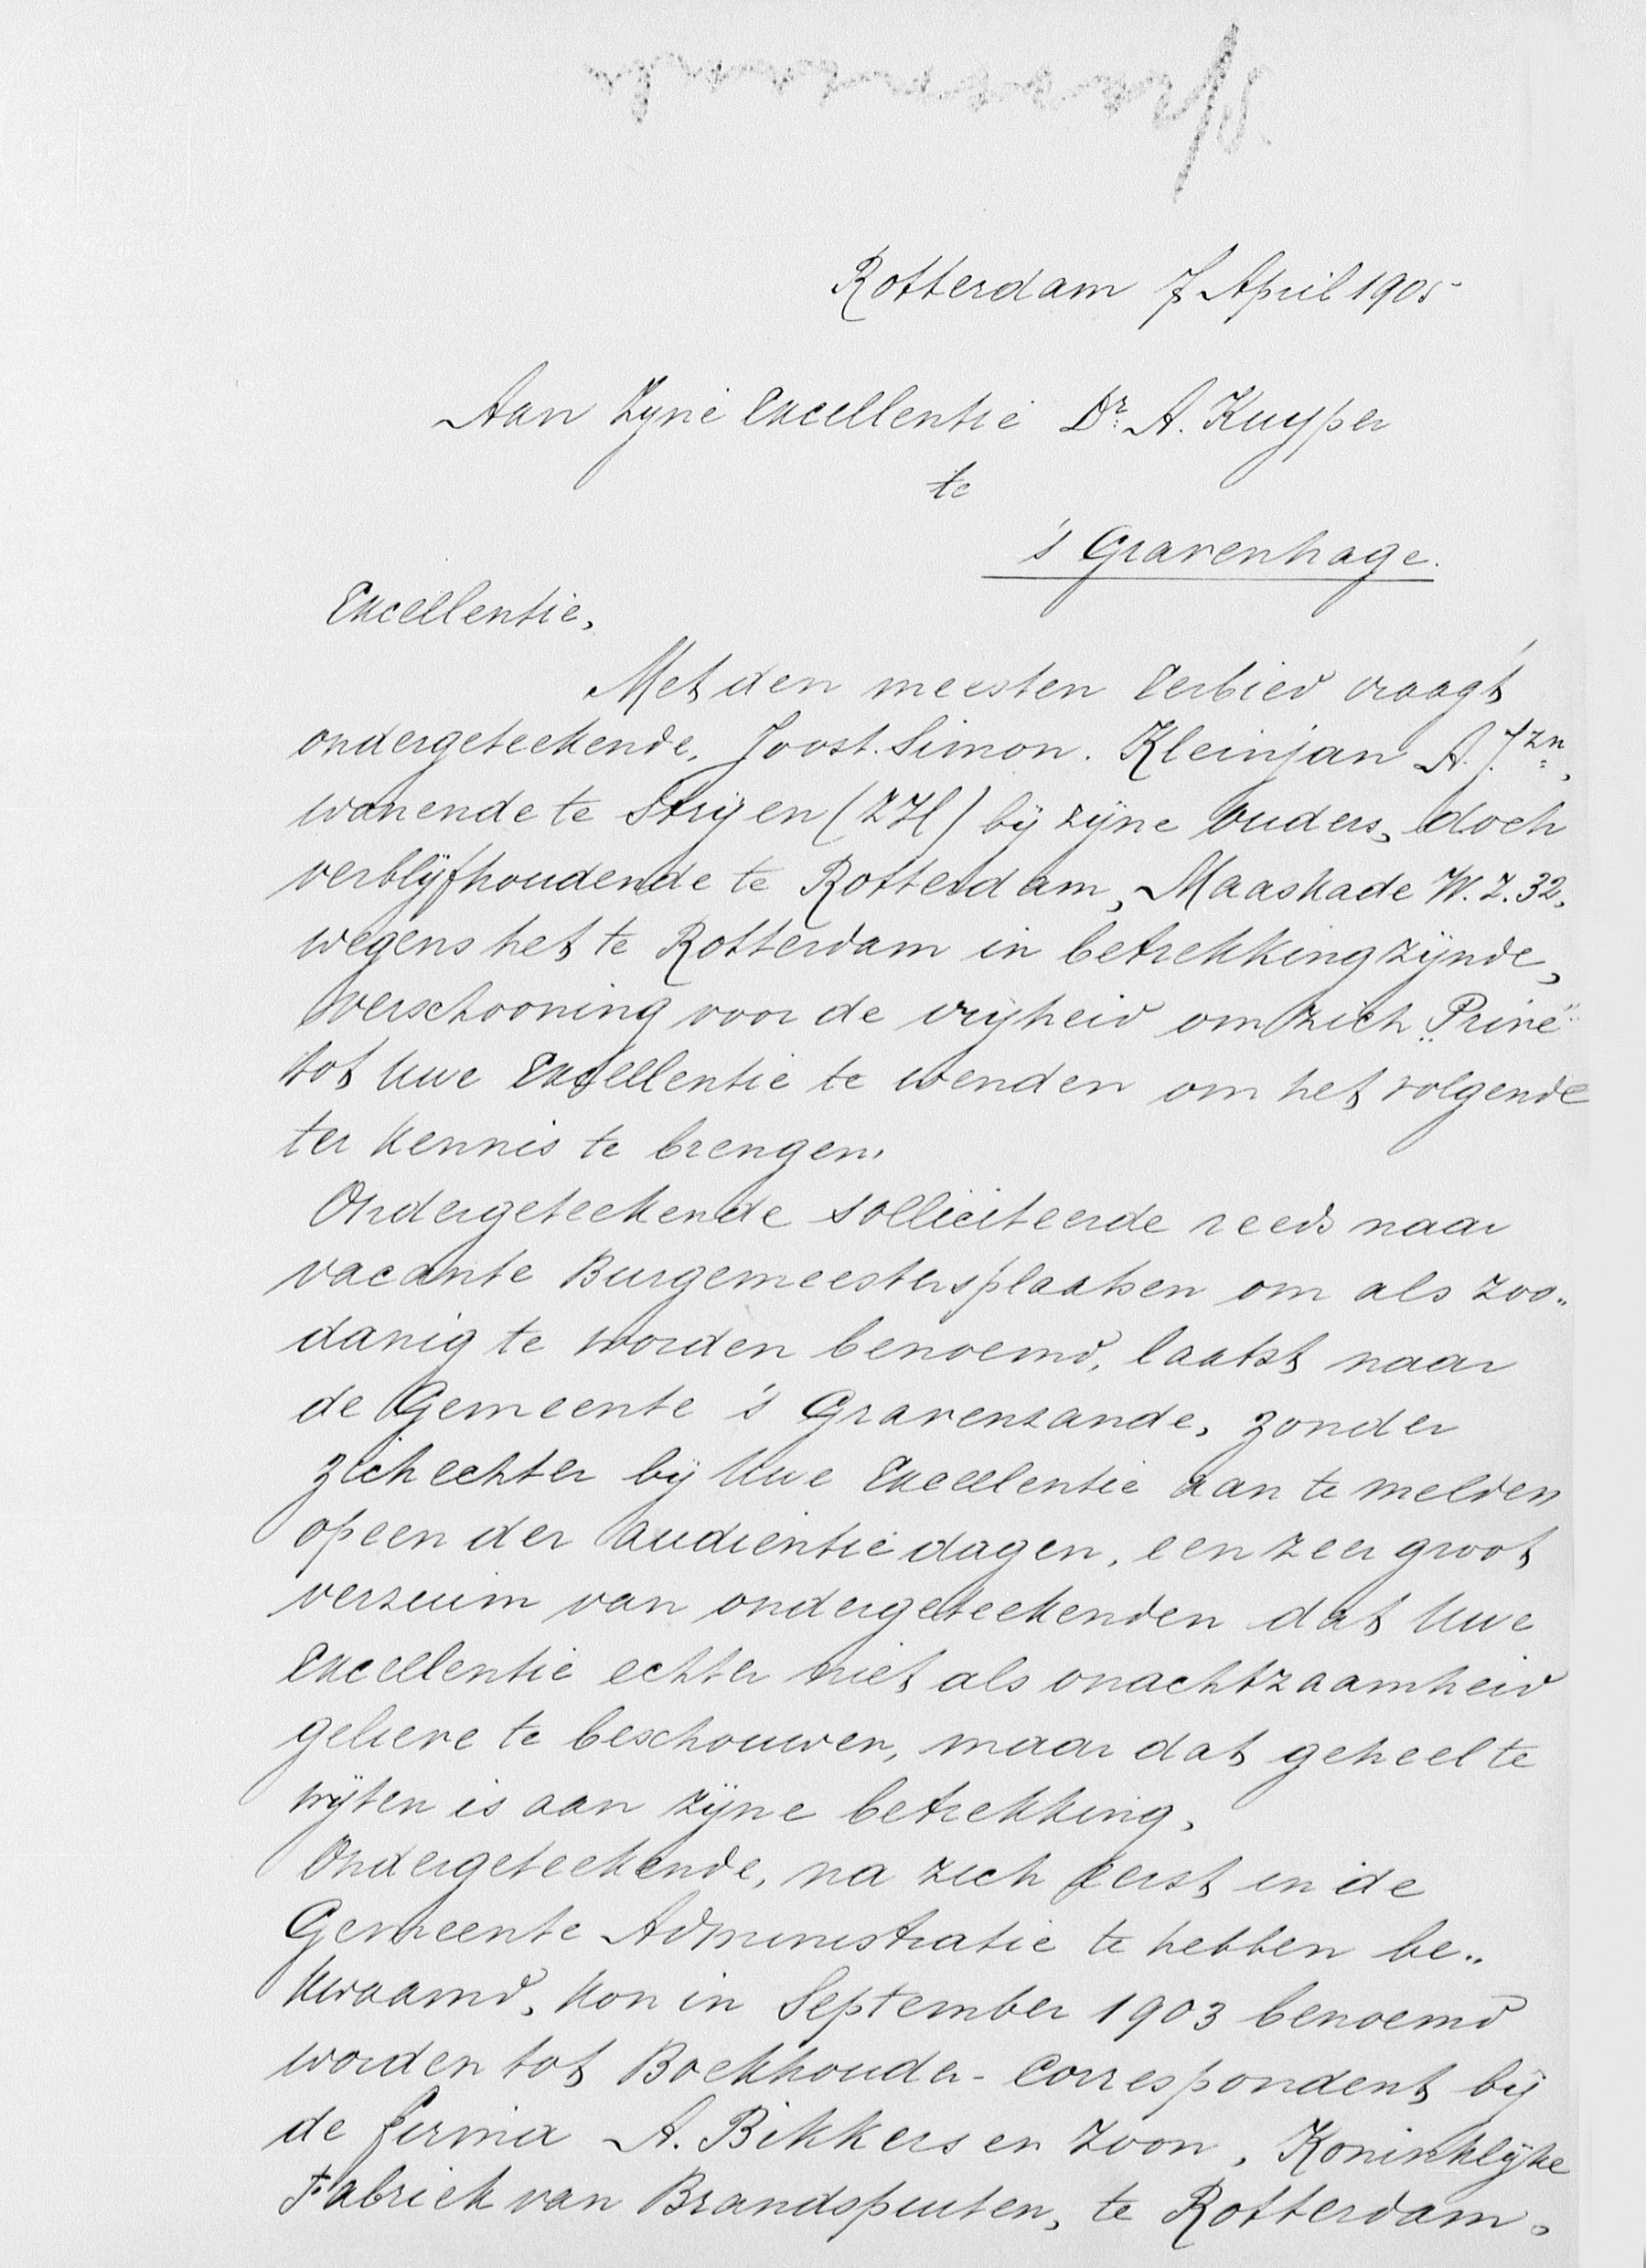 Rotterdam 7 April 1905
Aan Zyne Excellentie Dr. A. Kuyper
te
's Gravenhage.
Excellentie,
Met den meesten Eerbied vraagt
ondergeteekende, Joost. Simon. Kleinjan A. Jzn,
wonende te Stryen (ZH) bij zijne Ouders, doch
verblijfhoudende te Rotterdam, Maaskade W.Z. 32,
wegens het te Rotterdam in betrekking zijnde,
verschooning voor de vrijheid om zich "Privé"
tot Uwe Excellentie te wenden om het volgende
ter kennis te brengen.
Ondergeteekende solliciteerde reeds naar
vacante Burgemeestersplaatsen om als zoo„
danig te worden benoemd, laatst naar
de Gemeente 's Gravenzande, zonder
zich echter bij Uwe Excellentie aan te melden
op een der audientie dagen, een zeer groot
verzuim van ondergeteekenden dat Uwe
Excellentie echter niet als onachtzaamheid
gelieve te beschouwen, maar dat geheel te
wijten is aan zijne betrekking,
Ondergeteekende, na zich eerst in de
Gemeente Administratie te hebben be„
kwaamd, kon in September 1903 benoemd
worden tot Boekhouder-Correspondent bij
de firma A. Bikkers en Zoon, Koninklijke
Fabriek van Brandspuiten, te Rotterdam,